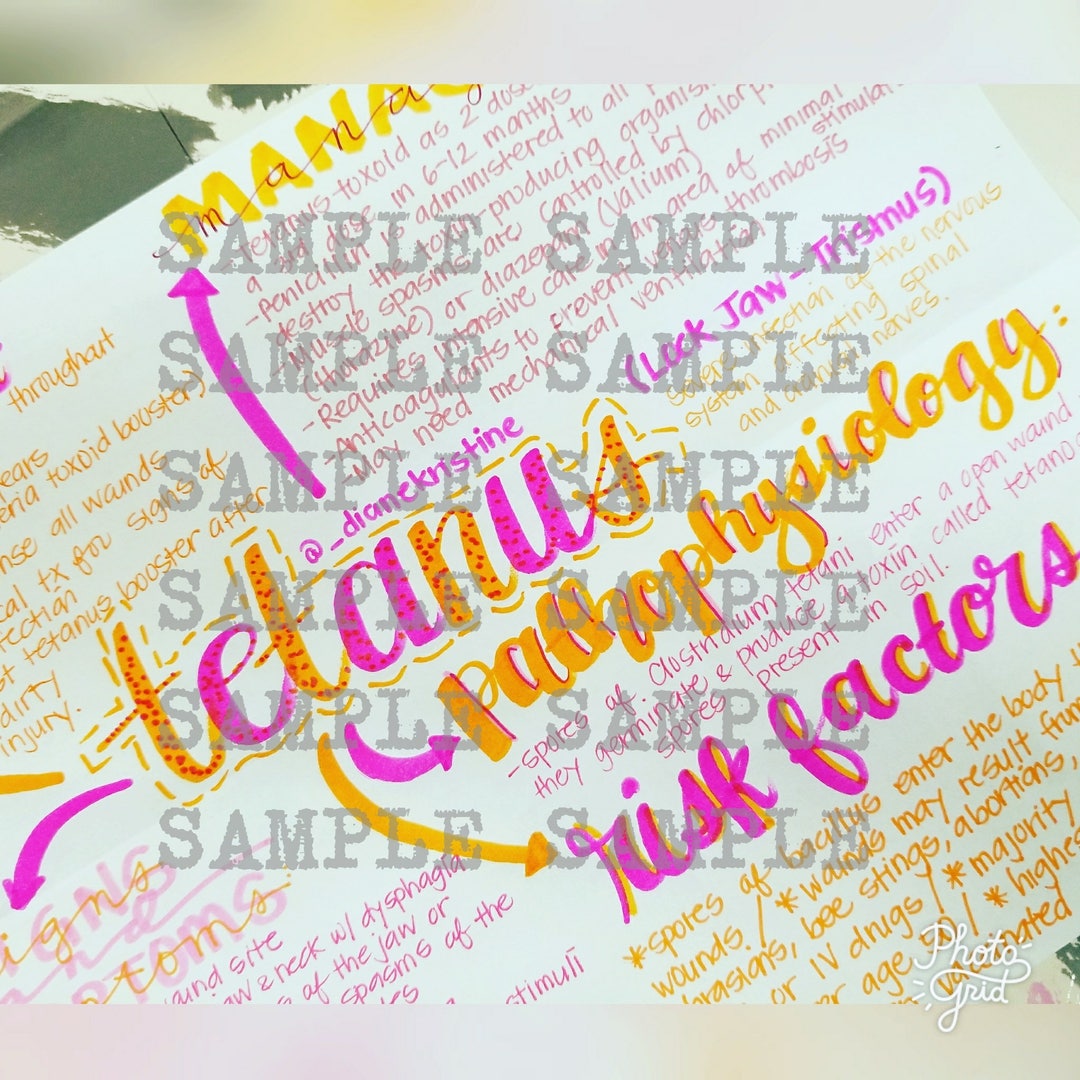 MANAG
manag
Tetanus toxoid as 2 dose
a 3rd dose in 6-12 months
-Penicillin is administered to all p
destroy the toxin-producing organism
-Muscle spasms are controlled by chlorp
(thorazine) or diazepam (valium)
-Requires intensive care in an area of minimal
stimulati
-Anticoagulants to prevent venous thrombosis
-May need mechanical ventilation
(Lock Jaw - Trismus)
severe infection of the nervous
system affecting spinal
and cranial nerves.
throughout
years
eria toxoid booster)
nse all wounds
cal tx for signs of
fection
st tetanus booster after
dirty
injury.
@_dianekristine
tetanus
pathophysiology:
-spores of Clostridium tetani enter a open wound
they germinate & produce a toxin called tetano
spores present in soil.
risk factors
*spores of bacillus enter the body th
wounds. / *wounds may result from
brasions, bee stings, abortions,
or IV drugs / *majority
er age 50 / * highes
vaccinated
SIGNS
&
PTOMS
signs
ptoms
wound site
jaw & neck w/ dysphagia
s of the jaw or
spasms of the
stimuli
SAMPLE SAMPLE
SAMPLE SAMPLE
SAMPLE SAMPLE
SAMPLE SAMPLE
SAMPLE SAMPLE
SAMPLE SAMPLE
SAMPLE SAMPLE
Photo
Grid